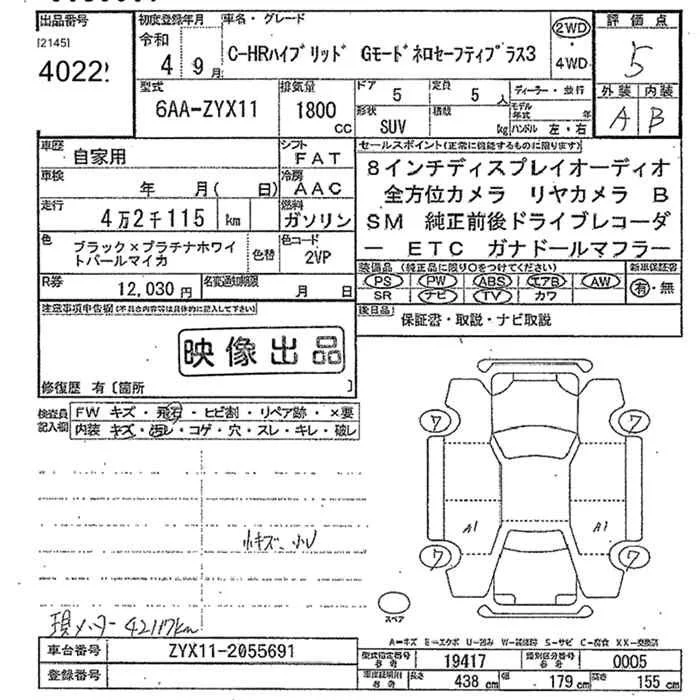 出品番号 初度登録年月 車名・グレード 2WD 評価点
[2145] 令和 C-HRハイブリッド Gモードネロセーフティプラス3 ・
4022 4年 9月 4WD 5
型式 排気量 ドア 5 定員 5人 ディーラー・並行 外装 内装
6AA-ZYX11 1800 cc 形状 SUV 積載 kg モデル年式 年 A B
ハンドル 左・右
車歴 自家用 シフト FAT セールスポイント(正常に機能するものに限ります)
車検 年 月( 日) 冷房 AAC 8インチディスプレイオーディオ
走行 4万2千115 km 燃料 ガソリン 全方位カメラ リヤカメラ B
色 ブラック×プラチナホワイ 色替 色コード SM 純正前後ドライブレコーダ
トパールマイカ 2VP ー ETC ガナドールマフラー
R券 12,030円 名変通知期限 月 日 装備品 (純正品に限り○をつけてください) 新車保証書
PS PW ABS エアB AW 有・無
SR ナビ TV カワ
注意事項申告欄(不具合内容等は具体的に記入して下さい) 後日品 保証書・取説・ナビ取説
映像出品
修復歴 有〔箇所 〕
検査員 FW キズ・飛石・ヒビ割・リペア跡・×要
記入欄 内装 キズ・汚レ・コゲ・穴・スレ・キレ・破レ
ワ ワ
A1 A1
小キズ、小U
ワ ワ
スペア
現メーター 42117km
A=キズ E=エクボ U=凹み W=補修跡 S=サビ C=腐食 XX=交換済
車台番号 ZYX11-2055691 型式指定番号 19417 類別区分番号 0005
登録番号 長さ 438 cm 幅 179 cm 高さ 155 cm